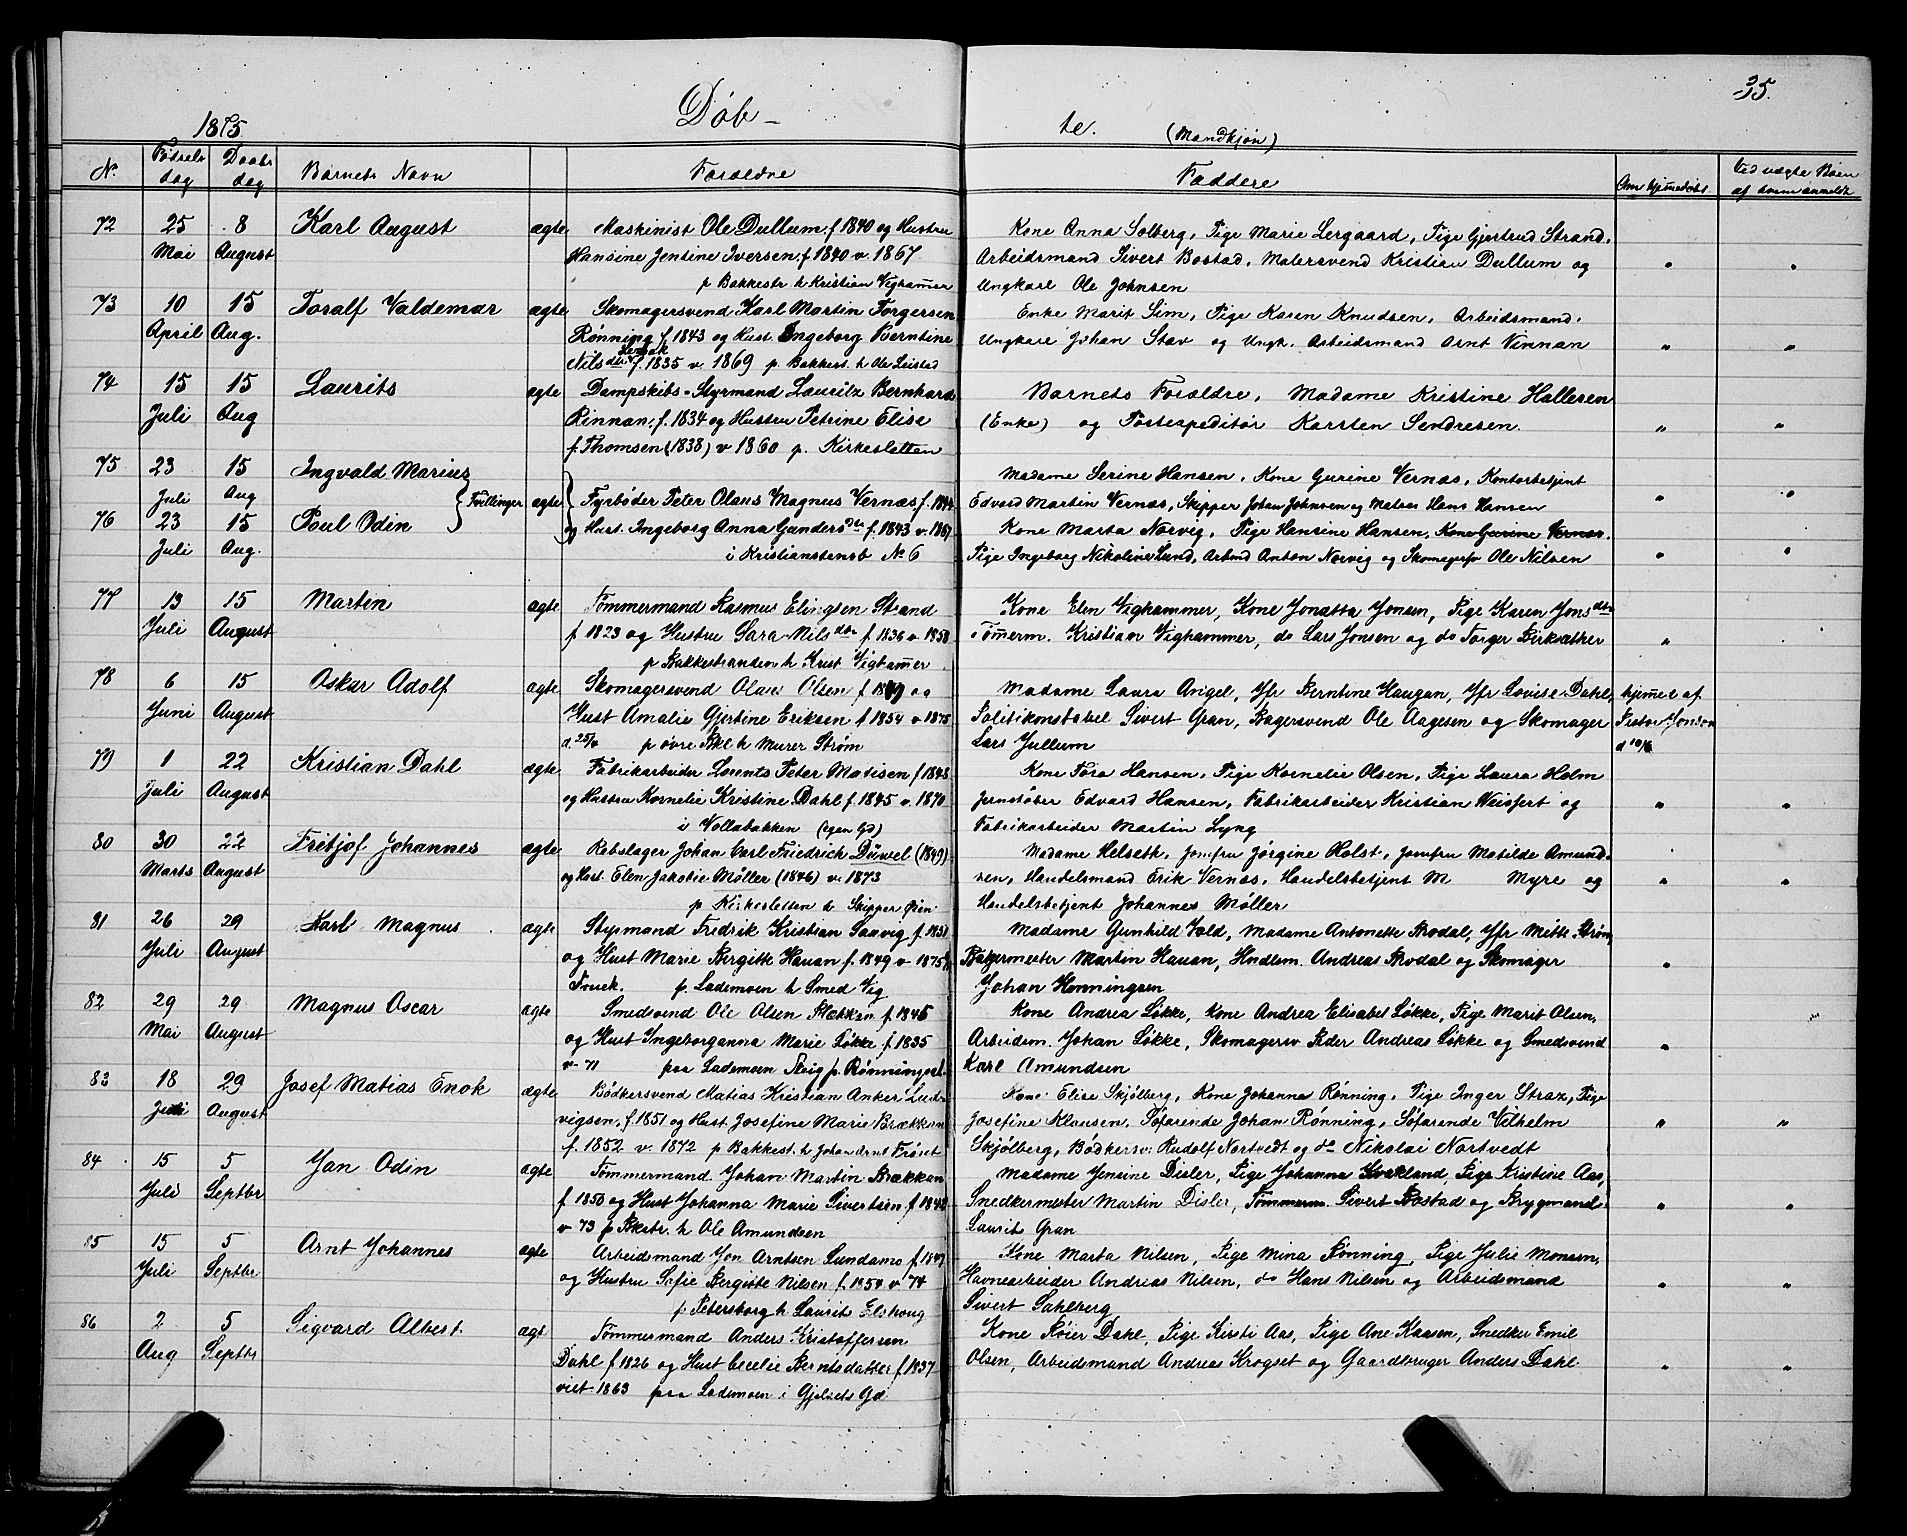 35.
1875 Døb- te. (Mandkjøn)
N. Fødsels dag Daabs dag Barnets Navn Forældre Faddere Om hjemmedøbt Ved uægte Børn af hvem anmeldt
72 25 8 Karl August ægte Maskinist Ole Dullum f. 1840 og Hustru Kone Anna Solberg, Pige Marie Lergaard, Pige Gjertrud Strand,
Mai August Hansine Jentine Iversen f. 1840 v. 1867 Arbeidsmand Sivert Bostad, Malersvend Kristian Dullum og " "
p Bakkestr. h Kristian Vighammer Ungkarl Ole Johnsen
73 10 15 Toralf Valdemar ægte Skomagersvend Karl Martin Torgersen Enke Marit Sim, Pige Karen Knudsen, Arbeidsmand.
April Aug. Rønning f. 1843 og Hust. Ingeborg Berntine Ungkarl Johan Stav og Ungk. Arbeidsmand Arnt Vinnan " "
Nilsdtr f. 1835 v. 1869 p. Bakkest. h Ole Leistad
74 15 15 Laurits ægte Dampskibs-Styrmand Lauritz Bernhard Barnets Forældre, Madame Kristine Hallesen
Juli Aug Rinnan, f. 1834 og Hustru Petrine Elise (Enke) og Postexpeditør Karsten Sendresen. " "
f. Thomsen (1838) v 1860 p. Kirkesletten
75 23 15 Ingvald Marius Madame Serine Hansen, Kone Gurine Vernæs, Kontorbetjent
Juli Aug Tvillinger ægte Fyrbøder Peter Olaus Magnus Vernæs f. 1844 Edvard Martin Vernæs, Skipper Johan Johnsen og Matros Hans Hansen " "
76 23 15 Poul Odin og Hust. Ingeborg Anna Gundersdtr f. 1843 v. 1867 Kone Marta Norvig, Pige Hansine Hansen, Kone Gurine Vernæs.
Juli Aug. i Kristianstensb N. 6 Pige Ingeborg Nikoline Lund, Arbmd Anton Norvig og Skomagersv Ole Nilsen " "
77 13 15 Martin ægte Tømmermand Rasmus Elingsen Strand Kone Elen Vighammer, Kone Jonatta Jonsen, Pige Karen Jonsdtr
Juli August f 1823 og Hustru Sara Nilsdtr f. 1836 v. 1858 Tømerm. Kristian Vighammer, do Lars Jonsen og do Torger Birksæther "
p Bakkestranden h Krist Vighammer
78 6 15 Oskar Adolf ægte Skomagersvend Olaus Olsen f 1849 og Madame Laura Angel, Jfr Berntine Haugan, Jfr Lovise Dahl, hjemed af
Juni August Hust Amalie Gjertine Eriksen f 1854 v 1875 Politikonstabel Sivert Gran, Bagersvend Ole Aagesen og Skomager Pastor Jonson
d 25/ p øvre Bkl h Murer Strøm Lars Jullum d 10/6
79 1 22 Kristian Dahl ægte Fabrikarbeider Lorents Peter Matisen f 1843 Kone Tora Hansen, Pige Kornelie Olsen, Pige Laura Holm
Juli August og Hustru Kornelie Kristine Dahl f. 1845 v. 1870 Jernstøber Edvard Hansen, Fabrikarbeider Kristian Weisfert og " "
i Vollabakken (egen Gd) Fabrikarbeider Martin Lyng
80 30 22 Fritjof Johannes ægte Rebslager Johan Carl Friedrich Düwel (1849) Madame Helseth, Jomfru Jørgine Holst, Jomfru Matilde Amund-
Marts August og Hust. Elen Jakobie Møller (1846) v. 1873 sen, Handelsmand Erik Vernæs, Handelsbetjent M Myre og " "
p Kirkesletten h Skipper Øien Handelsbetjent Johannes Møller
81 26 29 Karl Magnus ægte Styrmand Fredrik Kristian Saavig f. 1851 Madame Gunhild Vold, Madame Antonette Brodal, Jfr Mette Strøm,
Juli August og Hust Marie Bergitte Hauan f. 1849 v 1875 Bagermester Martin Hauan, Hndlsm. Andreas Brodal og Skomager "
p. Lademoen h Smed Vig Johan Henningsen
82 29 29 Magnus Oscar ægte Smedsvend Ole Olsen Sletten f. 1845 Kone Andrea Løkke, Kone Andrea Elisabet Løkke, Pige Marit Olsen,
Mai August og Hust Ingeborganna Marie Løkke f. 1835 Arbeidsm. Johan Løkke, Skomagersv Peder Andreas Løkke og Smedsvend "
v. 71 paa Lademoen Karl Amundsen
83 18 29 Josef Matias Enok ægte Bødkersvend Matias Kristian Anker Lud- Kone Elise Skjølberg, Kone Johanna Rønning, Pige Inger Straz, Pige
Juli August vigsen, f. 1851 og Hust Josefine Marie Brækkan Josefine Klausen, Søfarende Johan Rønning, Søfarende Vilhelm " "
f. 1852 v. 1872 p Bakkest. h Johan Arnt Frøset Skjølberg, Bødkersv. Rudolf Nortvedt og do Nikolai Nortvedt
84 15 5 Jan Odin ægte Tømmermand Johan Martin Brækkan Madame Jensine Disler, Pige Johanna Kvakland, Pige Kristine Aas,
Juli Septbr f 1850 og Hust Johanna Marie Sivertsen f 1842 Snedkermester Martin Disler, Tømmerm Sivert Bostad og Brygmand " "
v 73 p Bkstr. h Ole Amundsen Laurits Gran
85 15 5 Arnt Johannes ægte Arbeidsmand Jon Arntsen Lundamo f 1849 Kone Marta Nilsen, Pige Mina Rønning, Pige Julie Monsen,
Juli Septbr og Hustru Sofie Bergitte Nilsen f. 1854 v 74 Havnearbeider Andreas Nilsen, do Hans Nilsen og Arbeidsmand " "
p Petersborg h Laurits Elshoug Sivert Sahlberg
86 2 5 Sigvard Albert ægte Tømmermand Anders Kristoffersen Kone Røier Dahl, Pige Kirsti Aas, Pige Ane Kaasen, Snedker Emil
Aug Septbr Dahl f 1826 og Hust Cecelie Berntsdatter f 1837 Olsen, Arbeidsmand Andreas Krogset og Gaardbruger Anders Dahl " "
viet 1863 paa Lademoen i Gjelvets Gd